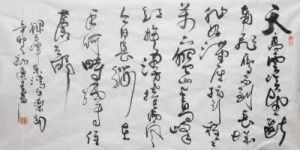 天高雲淡望斷
南飛雁不到長城
非好漢屈指行程二
萬六盤山上高峰
紅旗漫捲西風
今日長纓在
手何時縛住
蒼龍